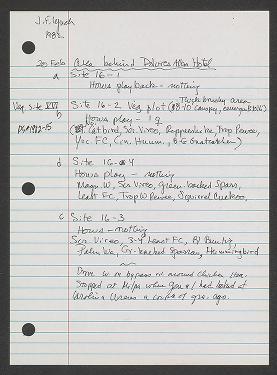 J.F. Lynch
1982
20 Feb area behind Dolores Alba Hotel
a Site 16-1
Hours playback - nothing
Thick brushy area
Veg. site XVI b Site 16-2 Veg plot (8-10 canopy, emergents
Hours play - 1 ♀
(Catbird, Scr. Vireo, Peppershrike, Trop Pewee,
Yuc. FC, Cin. Humm., B-G Gnatcatcher)
d Site 16-4
Hours play - nothing
Magn W, Scr Vireo, Green-backed Sparr,
Least FC, Trop Pewee, Squirrel Cuckoo,
c Site 16-3
Hours - nothing
Scr. Vireo, 3-4 Least FC, Bunting
Palm Wa, Gr-backed Sparrow, Hummingbird
Drive W on bypass rd around Chichen Itza.
Stopped at when I had looked at
Carolina Wrens a couple of yrs. ago.